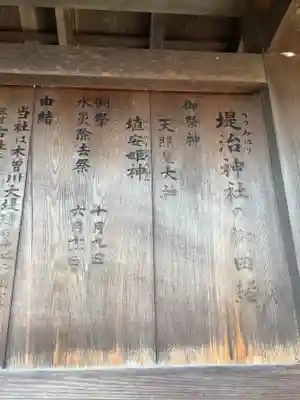 つつみはり
堤治神社の御由緒
御祭神
天照皇大神
埴安姫神
例祭 十月九日
水災除去祭 六月十二日
由緒
当社は木曽川大堤